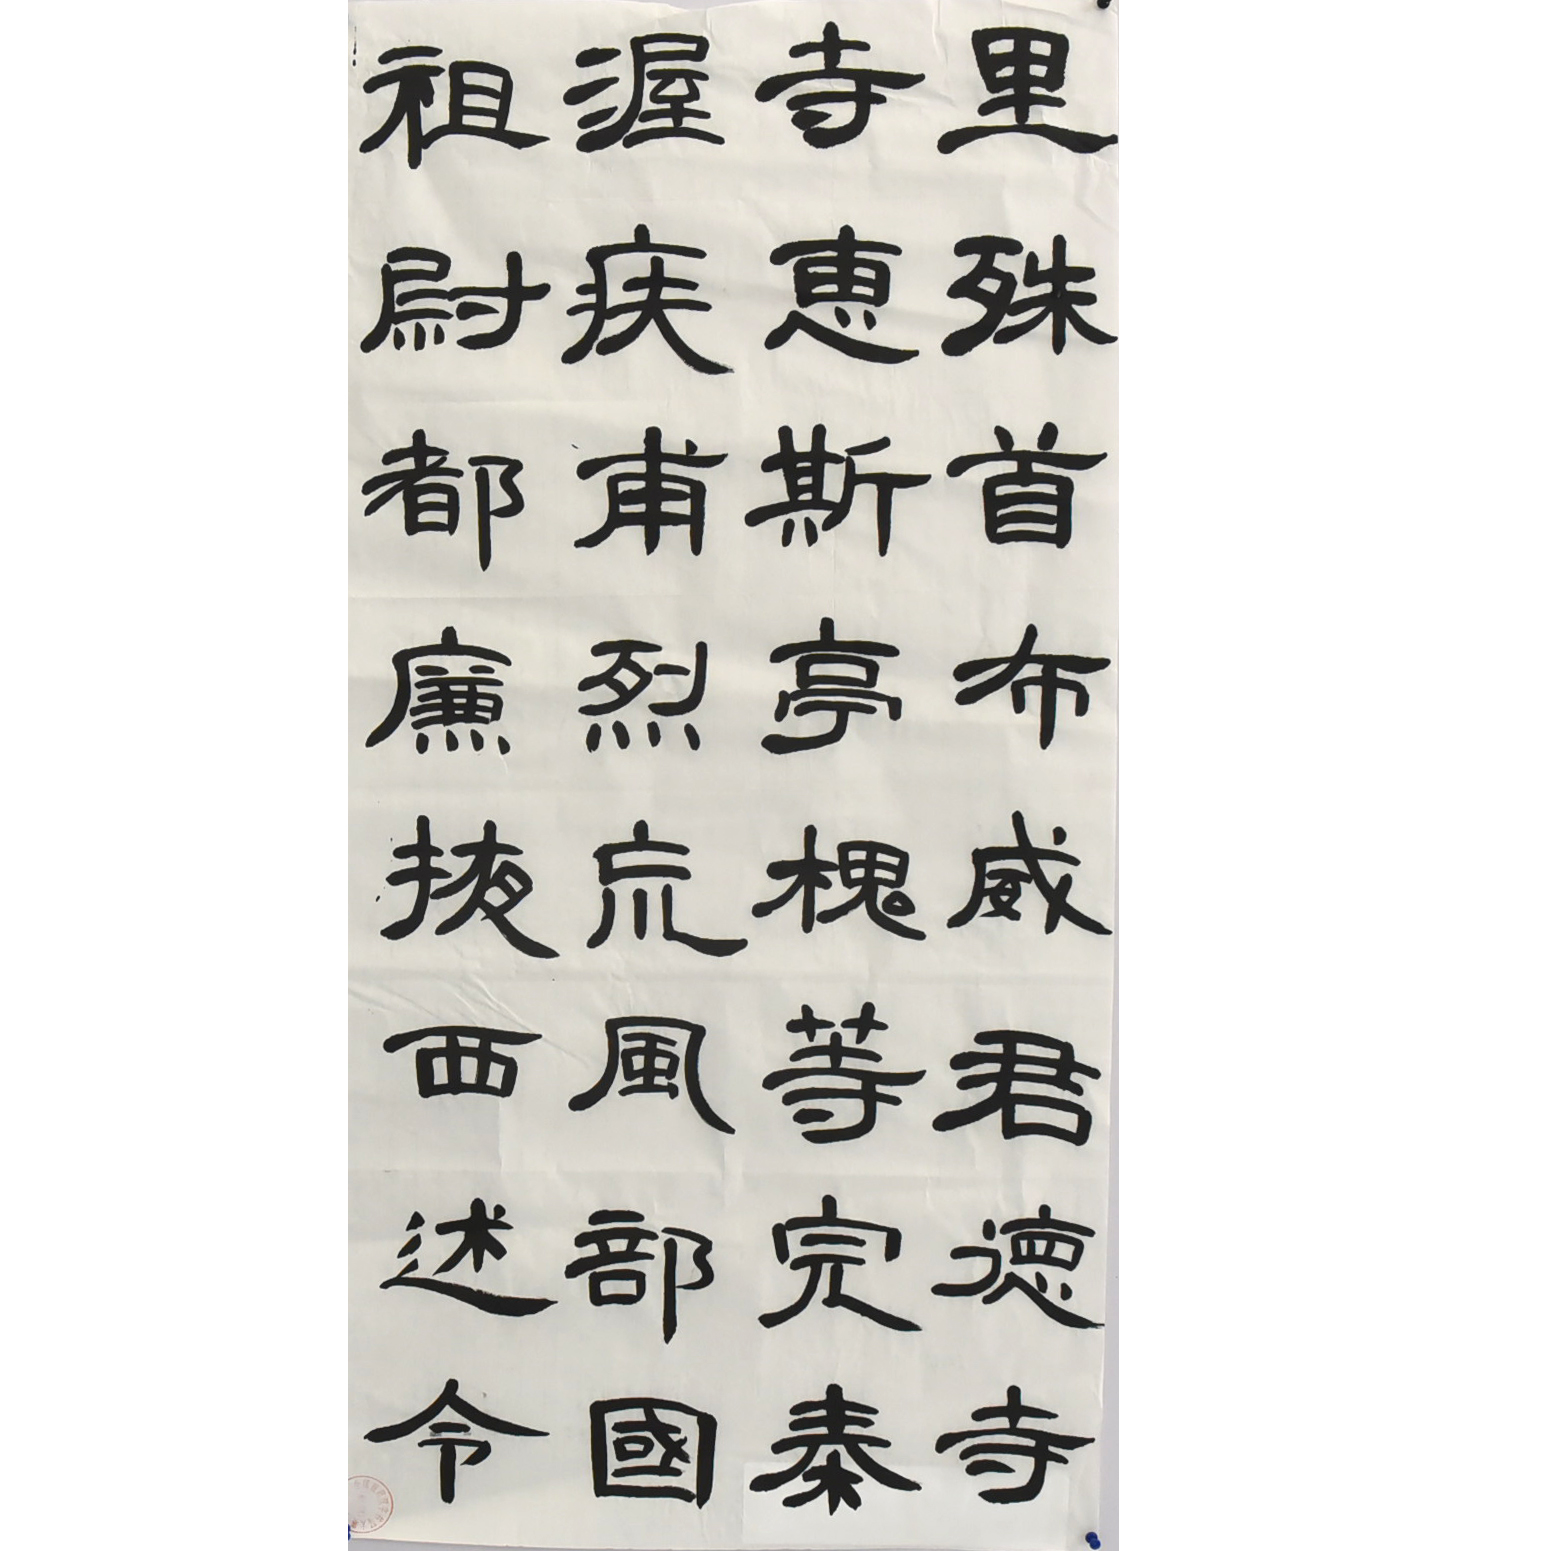 里殊首布威君德寺
寺惠斯亭槐等完秦
渥疾甫烈巟風部國
祖尉都廉掖西述令